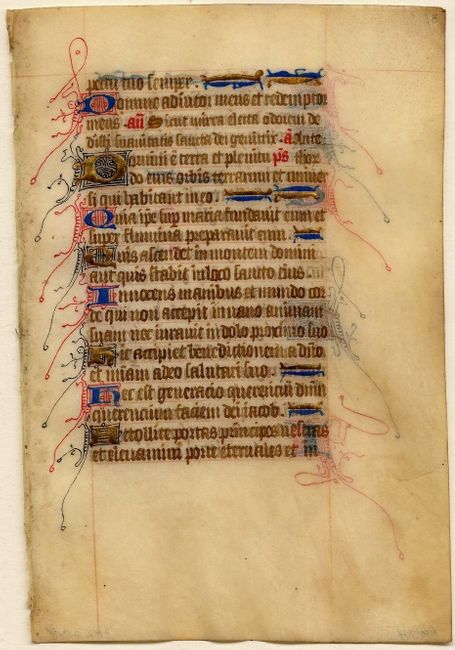 pectu tuo semper.
Domine adiutor meus et redemptor
meus. añ Sicut mirra electa odorem de
disti suauitatis sancta dei genitrix. a Ante
Domini ē terra et plenitu ps thor
do eius orbis terrarum et uniuer
si qui habitant in eo.
Quia ipē sup maria fundauit eum et
super flumina preparauit eum.
Quis ascendet in montem domini
aut quis stabit in loco sancto eius
Innocens manibus et mundo cor
de qui non accepit in uano animam
suam nec iurauit in dolo proximo suo
Hic accipiet benedictionem a dño
et miam a deo salutari suo.
Hec est generacio querencium dnm
querencium faciem dei iacob.
Attollite portas principes uestras
et eleuamini porte eternales et in